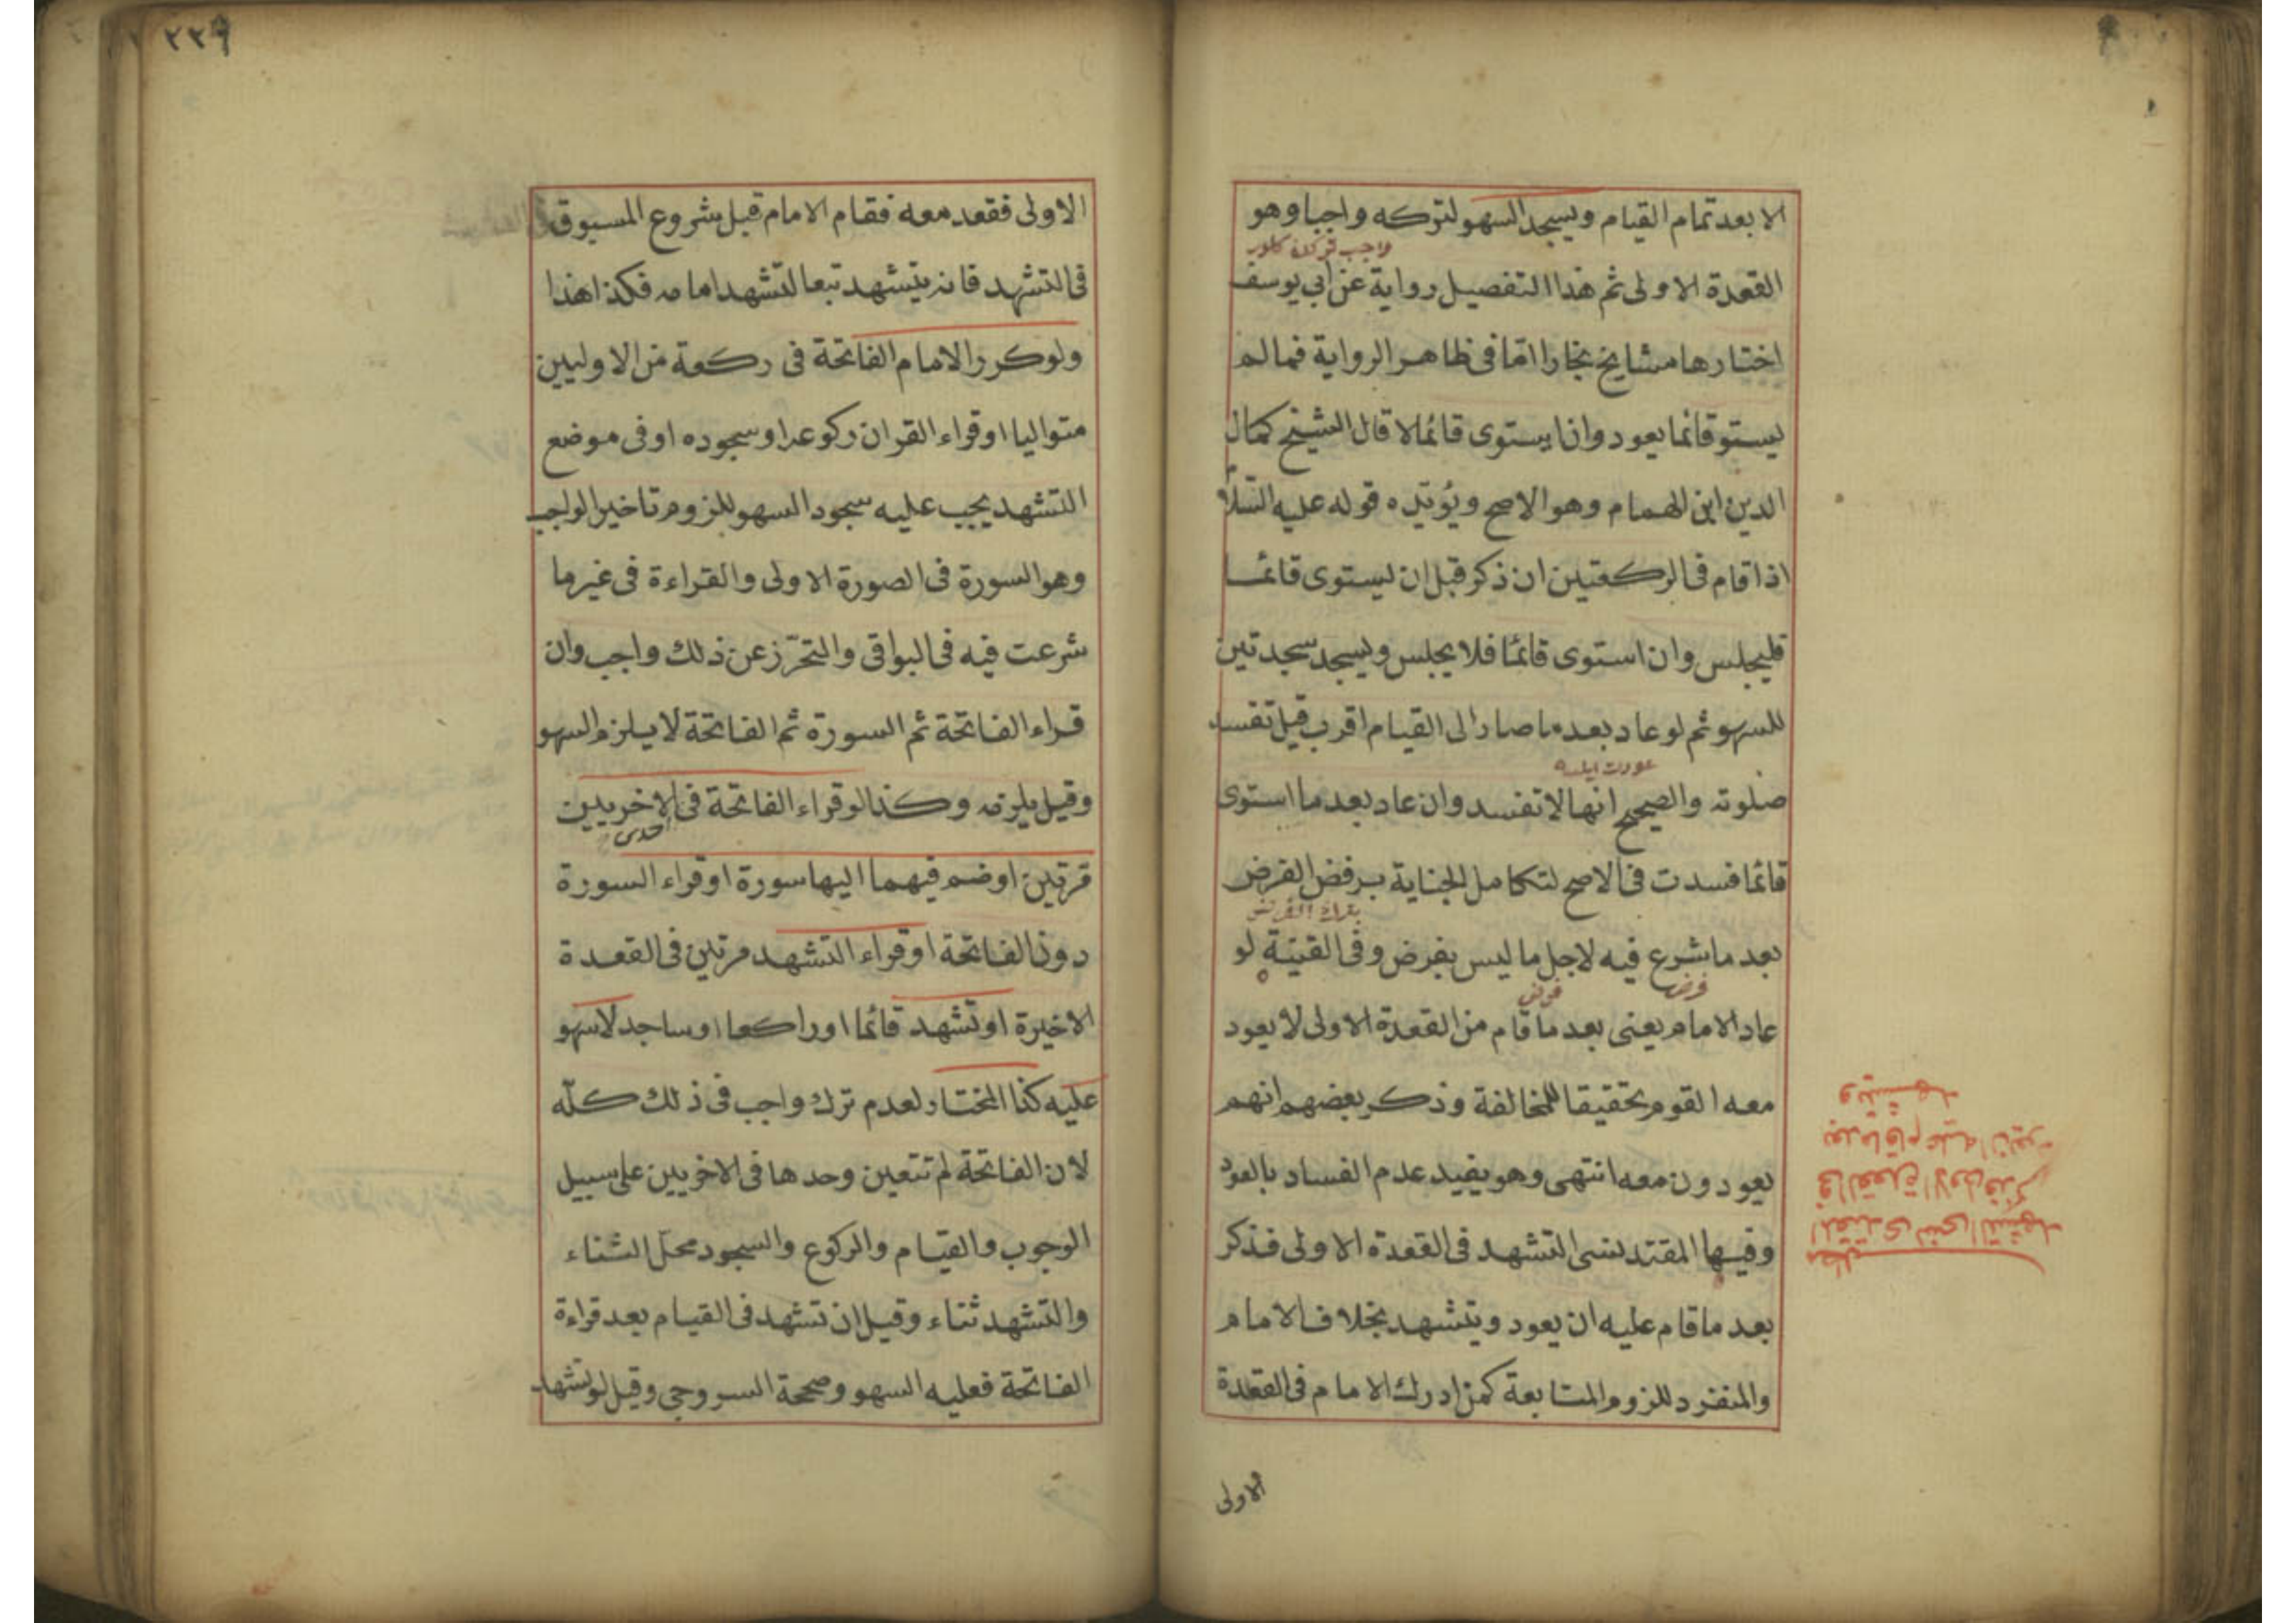 الا بعد تمام القيام ويسجد السهو لتركه واجبا وهو
القعدة الاولى ثم هذا التفصيل رواية عن ابي يوسف
اختارها مشايخ بخارا اما فى ظاهر الرواية فمالم
يستو قائما يعود وان استوى قائما لا قال الشيخ كمال
الدين ابن الهمام وهو الاصح ويؤيده قوله عليه السلا
اذا قام فى الركعتين ان ذكر قبل ان يستوى قائما
فليجلس وان استوى قائما فلا يجلس ويسجد سجدتين
للسهو ثم لو عاد بعد ما صار الى القيام اقرب قيل تفسد
عودت ايلسه
صلوته والصحيح انها لا تفسد وان عاد بعد ما استوى
قائما فسدت فى الاصح لتكامل الجناية برفض الفرض
بترك الفرض
بعد ما شرع فيه لاجل ما ليس بفرض وفى القنية لو
فرض
فرض
عاد الامام يعنى بعد ما قام من القعدة الاولى لا يعود
معه القوم تحقيقا للمخالفة وذكر بعضهم انهم
يعودون معه انتهى وهو يفيد عدم الفساد بالعود
وفيها المقتد نسى التشهد فى القعدة الاولى فذكر
بعد ما قام عليه ان يعود ويتشهد بخلاف الامام
والمنفرد للزوم المتابعة كمن ادرك الامام فى القعدة
الاولى
مطلب
المقتدى نسى التشهد
فى القعدة الاولى فذكر
بعد ما قام عليه ان يعود
ويتشهد
٢٣٩
الاولى فقعد معه فقام الامام قبل شروع المسبوق
فى التشهد فانه يتشهد تبعا لتشهد امامه فكذا هذا
ولو كرر الامام الفاتحة فى ركعة من الاوليين
متواليا او قراء القران ركوعه او سجوده او فى موضع
التشهد يجب عليه سجود السهو للزوم تاخير الواجب
وهو السورة فى الصورة الاولى والقراءة فى غير ما
شرعت فيه فى البواقى والتحرّز عن ذلك واجب وان
قراء الفاتحة ثم السورة ثم الفاتحة لا يلزم السهو
وقيل يلزمه وكذا لو قراء الفاتحة فى الاخريين
احدى
مرتين او ضم فيهما اليها سورة او قراء السورة
دون الفاتحة او قراء التشهد مرتين فى القعدة
الاخيرة او تشهد قائما او راكعا او ساجد لا سهو
عليه كذا المختار لعدم ترك واجب فى ذلك كلّه
لان الفاتحة لم تتعين وحدها فى الاخريين على سبيل
الوجوب والقيام والركوع والسجود محلّ الثناء
والتشهد ثناء وقيل ان تشهد فى القيام بعد قراءة
الفاتحة فعليه السهو وصححه السروجى وقيل لو تشهد